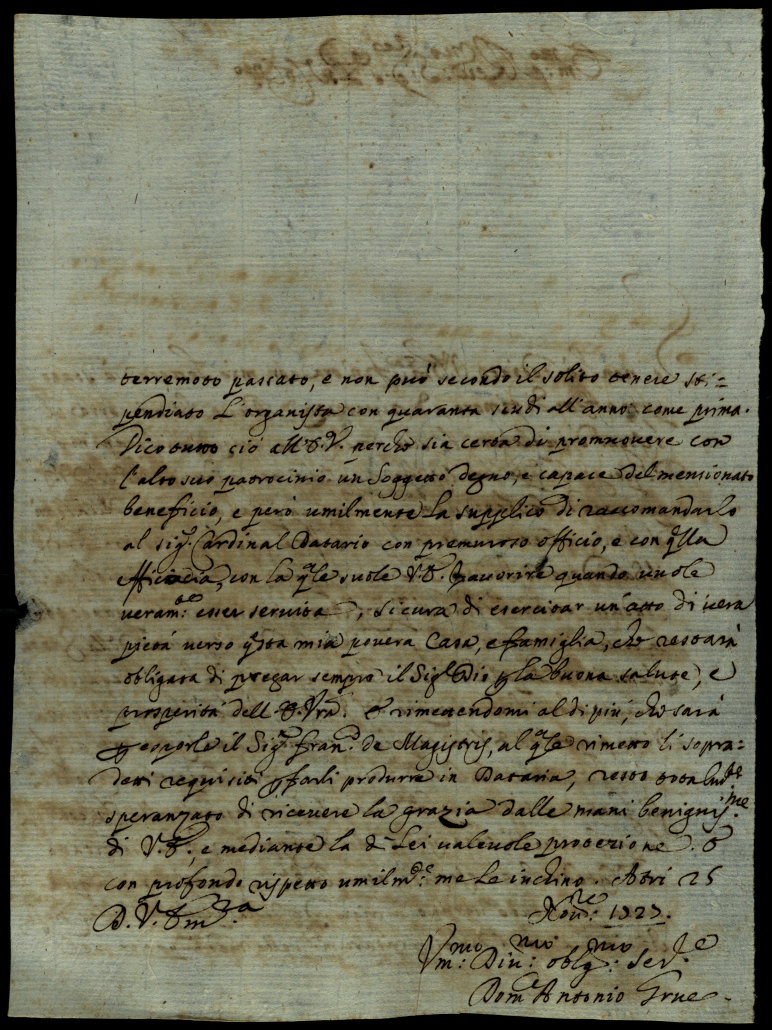 terremoto passato, e non può secondo il solito tenere sti=
pendiato L'organista con quaranta scudi all'anno come prima.
Dico tutto ciò all'E.V. perche sia certa di promuovere con
l'alto suo patrocinio un Soggetto degno, e capace del mensionato
beneficio, e però umilmente La supplico di raccomandarlo
al sig.r Cardinal Datario con premuroso officio, e con q.lla
efficacia, con la q.le suole V.E. favorire quando vuole
veram.te esser servita, sicura di esercitar un'atto di vera
pietá verso q.sta mia povera Casa, e famiglia, che restarà
obligata di pregar sempre il Sig.r Dio p la buona salute, e
prosperitá dell'E.Vra. E rimettendomi al di più, che sarà
p esporle il Sig.r Fran.co de Magistris, al q.le rimetto li sopra=
detti requisiti p farli produrre in Dataria, resto
speranzato di ricevere la grazia dalle mani benigniss.me
di V.E., e mediante la di Lei valevole protezione. E
con profondo rispetto umilm.te me Le inchino. Atri 25
D.V.Em.za
Nov.re: 1727.
Um.mo: Div.mo: oblig.mo: Ser.re
Dom.co Antonio Grue